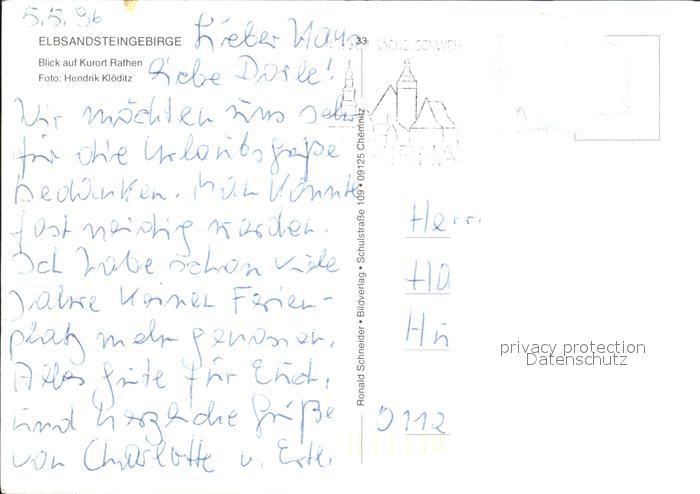 5.5.96
ELBSANDSTEINGEBIRGE
Blick auf Kurort Rathen
Foto: Hendrik Klöditz
Lieber Hans
Liebe Dorle!
Wir möchten uns sehr
für die Urlaubsgrüße
bedanken. Man könnte
fast neidig werden.
Ich habe schon viele
Jahre keinen Ferien-
platz mehr genossen.
Alles Gute für Euch,
und herzliche Grüße
von Charlotte u.
33
SÄCHS. SCHWEIZ
PIRNA
Ronald Schneider • Bildverlag • Schulstraße 109 • 09125 Chemnitz
Herr
Ha
0112
privacy protection
Datenschutz